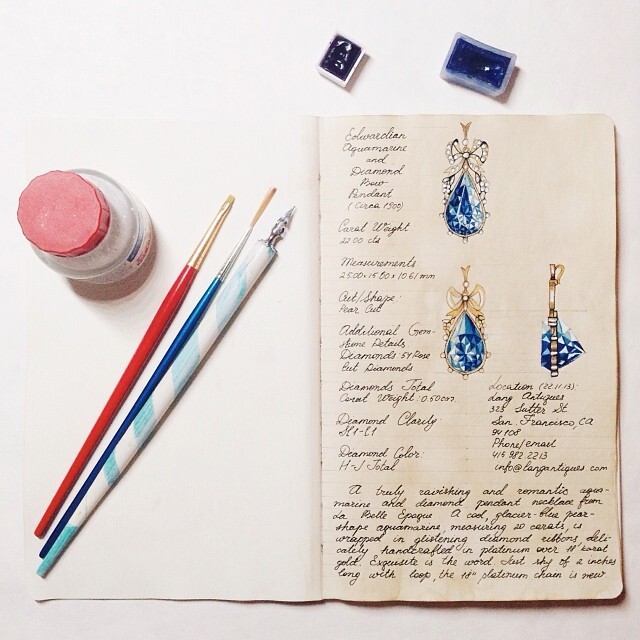 Edwardian
Aquamarine
and
Diamond
Bow
Pendant
(Circa 1900)
Carat Weight
22.00 cts
Measurements
25.00 x 15.80 x 10.61 mm
Cut/Shape:
Pear Cut
Additional Gem-
stone Details
Diamonds 54 Rose
Cut Diamonds
Diamonds Total
Carat Weight: 0.50 cm.
Diamond Clarity
SI1-I1
Diamond Color:
H-J Total
Location (22.11.13):
Lang Antiques
323 Sutter St
San. Francisco, CA
94108
Phone/email
415.982.2213
info@langantiques.com
A truly ravishing and romantic aqua-
marine and diamond pendant necklace from
La Belle Epoque. A cool, glacier-blue pear-
shape aquamarine, measuring 20 carats, is
wrapped in glistening diamond ribbons, deli-
cately handcrafted in platinum over 18 karat
gold. Exquisite is the word. Just shy of 2 inches
long with loop, the 18" platinum chain is new